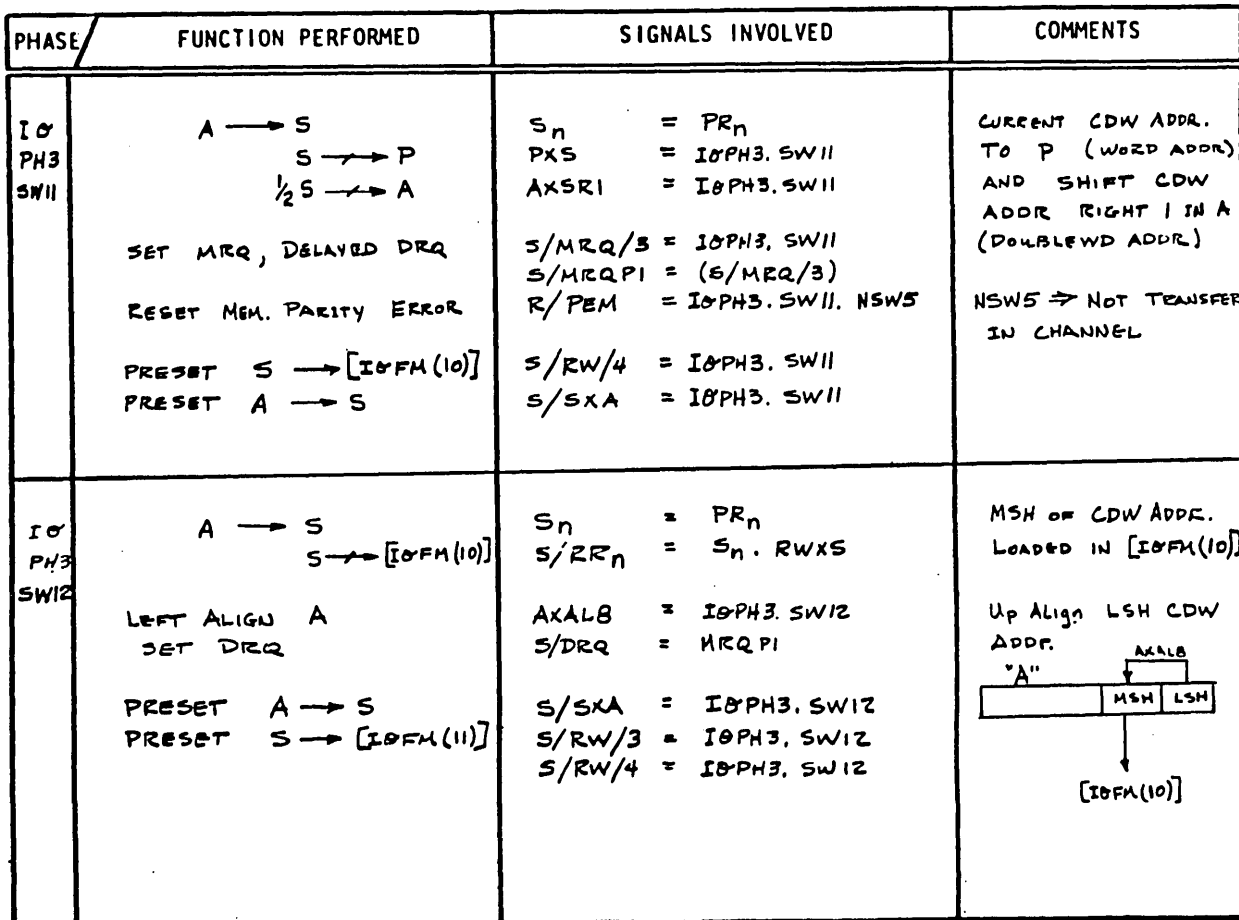 PHASE/ FUNCTION PERFORMED SIGNALS INVOLVED COMMENTS
IO
PH3
SW11
A → S
S ↛ P
½ S ↛ A
SET MRQ, DELAYED DRQ
RESET MEM. PARITY ERROR
PRESET S → [IOFM(10)]
PRESET A → S
Sn = PRn
PXS = IOPH3. SW11
AXSR1 = IOPH3. SW11
S/MRQ/3 = IOPH3. SW11
S/MRQP1 = (S/MRQ/3)
R/PEM = IOPH3. SW11. NSW5
S/RW/4 = IOPH3. SW11
S/SXA = IOPH3. SW11
CURRENT CDW ADDR.
TO P (WORD ADDR)
AND SHIFT CDW
ADDR RIGHT 1 IN A
(DOUBLEWD ADDR)
NSW5 ⇒ NOT TRANSFER
IN CHANNEL
IO
PH3
SW12
A → S
S ↛ [IOFM(10)]
LEFT ALIGN A
SET DRQ
PRESET A → S
PRESET S → [IOFM(11)]
Sn = PRn
S/RRn = Sn. RWXS
AXAL8 = IOPH3. SW12
S/DRQ = MRQP1
S/SXA = IOPH3. SW12
S/RW/3 = IOPH3. SW12
S/RW/4 = IOPH3. SW12
MSH OF CDW ADDR.
LOADED IN [IOFM(10)]
Up Align LSH CDW
ADDR.
AXAL8
"A"
MSH LSH
[IOFM(10)]